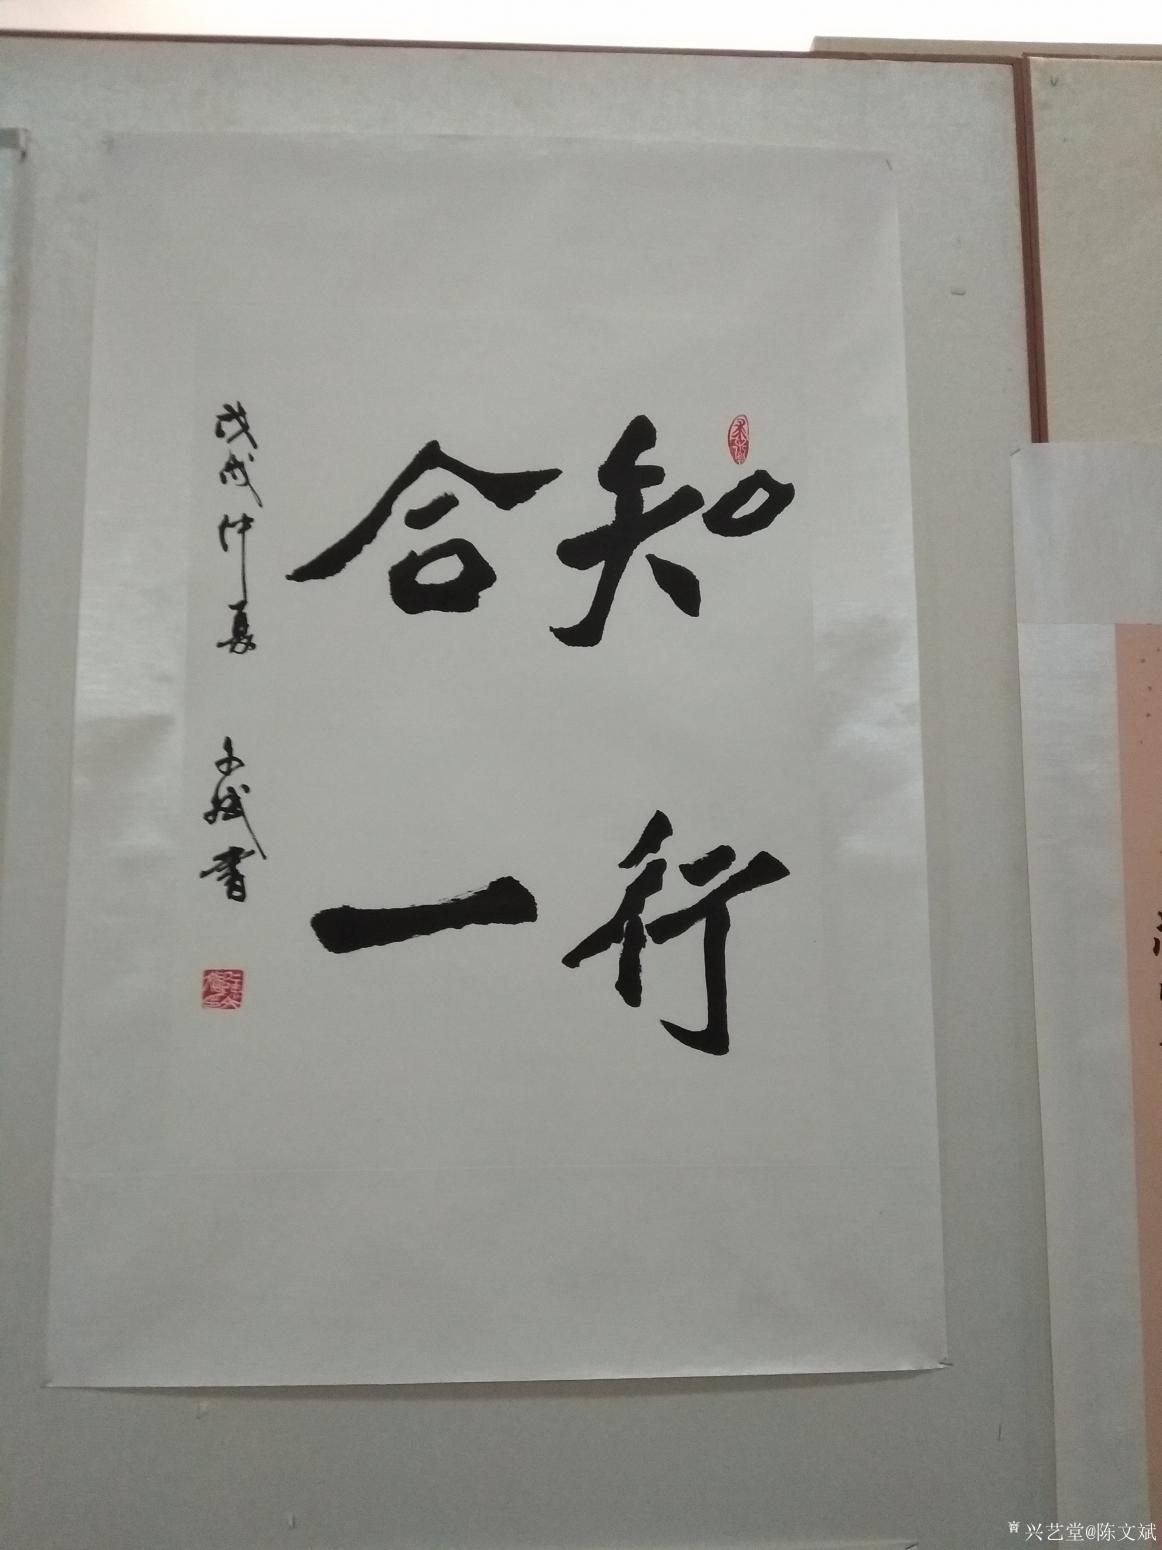 知行
合一
戊戌仲夏 文斌书
兴艺堂@陈文斌